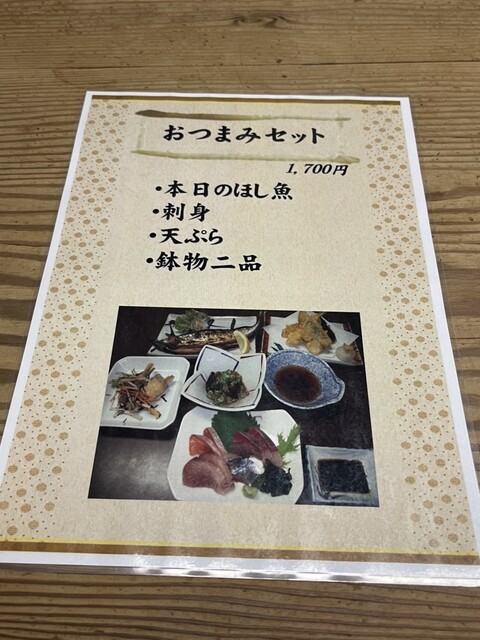 おつまみセット
1,700円
・本日のほし魚
・刺身
・天ぷら
・鉢物二品